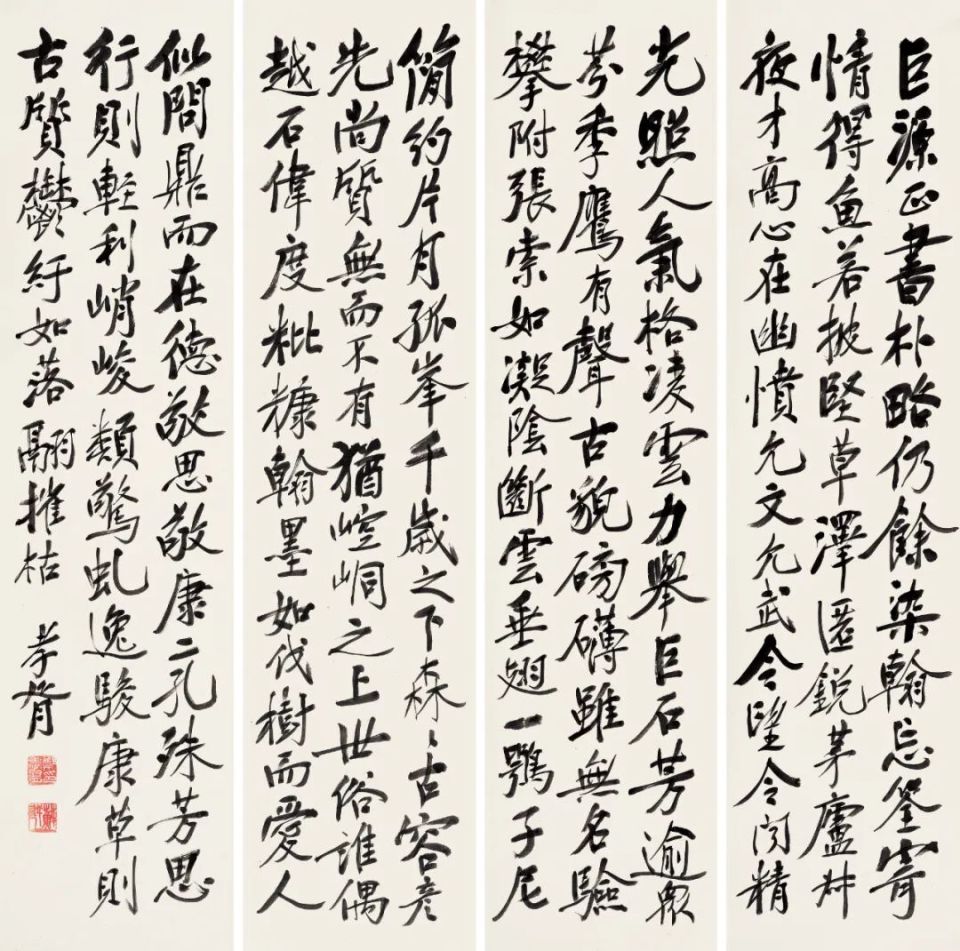 巨源正書朴略仍餘染翰忘筌寄
情得魚若披堅草澤匿銳茅廬叔
夜才高心在幽憤允文允武令望令聞精
光照人氣格凌雲力舉巨石芳逾眾
芬季鷹有聲古貌磅礴雖無名驗
攀附張索如凝陰斷雲垂翅一鶚子尼
簡約片月孤峯千歲之下森〻古容彥
先尚質無而不有猶崆峒之上世俗誰偶
越石偉度粃糠翰墨如伐樹而愛人
似問鼎而在德敬思敬康二孔殊芳思
行則輕利峭峻類驚虬逸駿康草則
古質鬱紆如落翮摧枯 孝胥